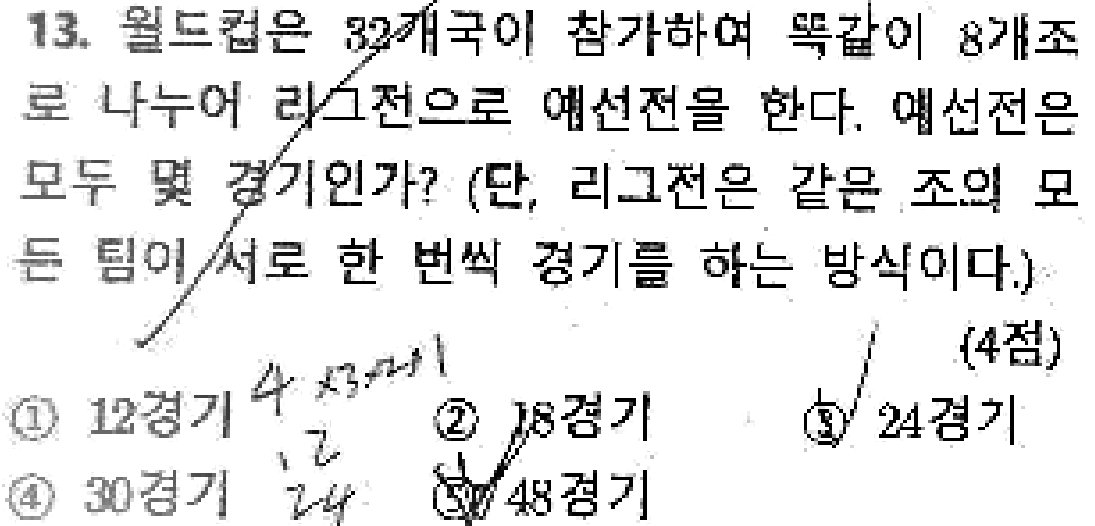 13. 월드컵은 32개국이 참가하여 똑같이 8개조
로 나누어 리그전으로 예선전을 한다. 예선전은
모두 몇 경기인가? (단, 리그전은 같은 조의 모
든 팀이 서로 한 번씩 경기를 하는 방식이다.)
(4점)
4 ×3×2×1
① 12경기 ② 18경기 ③ 24경기
12
④ 30경기 ⑤ 48경기
24